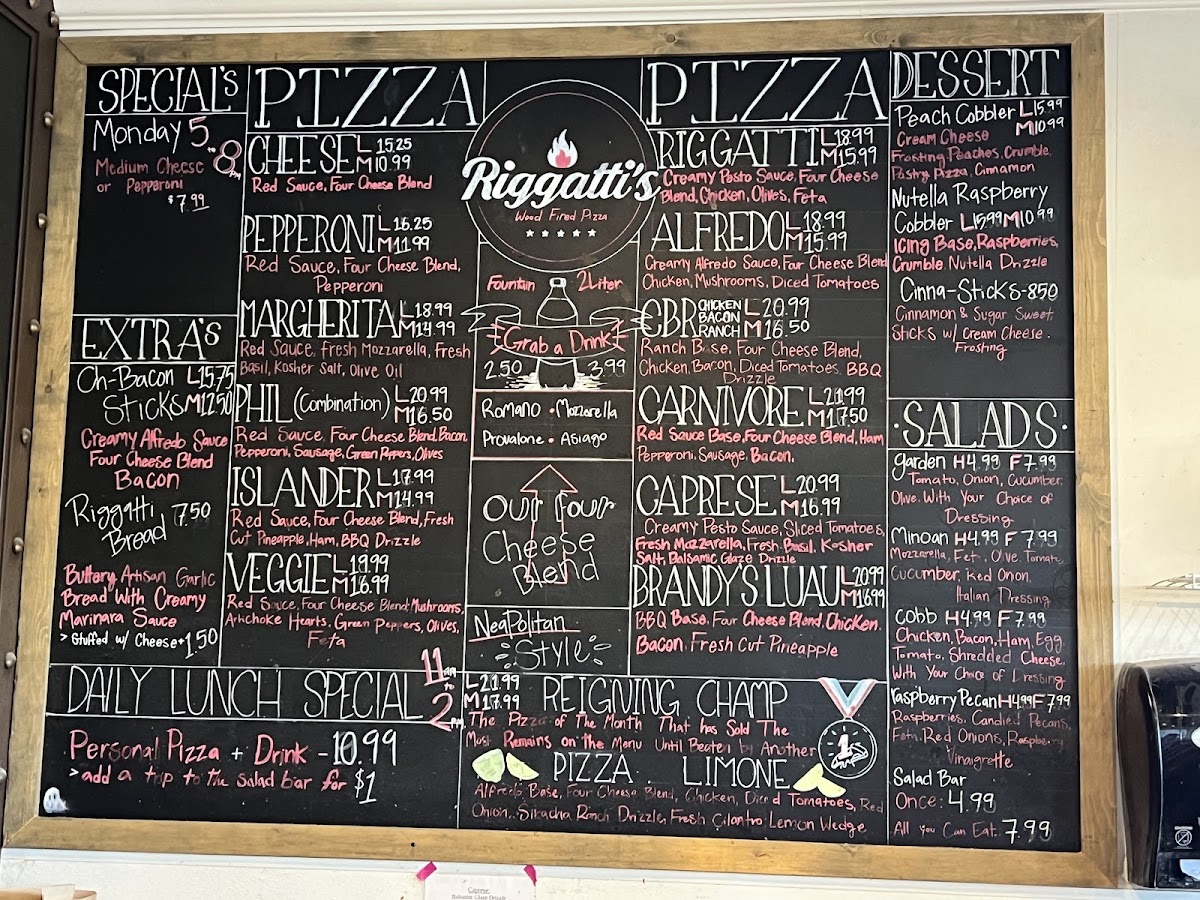 SPECIAL'S
Monday 5-8pm
Medium Cheese
or Pepperoni
$7.99
EXTRA'S
Ch-Bacon L15.75
Sticks M12.50
Creamy Alfredo Sauce
Four Cheese Blend
Bacon
Riggatti 7.50
Bread
Buttery Artisan Garlic
Bread With Creamy
Marinara Sauce
> Stuffed w/ Cheese+1.50
PIZZA
CHEESE L 15.25
M 10.99
Red Sauce, Four Cheese Blend
PEPPERONI L 16.25
M 11.99
Red Sauce, Four Cheese Blend,
Pepperoni
MARGHERITA L 18.99
M 14.99
Red Sauce, Fresh Mozzarella, Fresh
Basil, Kosher Salt, Olive Oil
PHIL (Combination) L 20.99
M 16.50
Red Sauce, Four Cheese Blend, Bacon
Pepperoni, Sausage, Green Peppers, Olives
ISLANDER L 17.99
M 14.99
Red Sauce, Four Cheese Blend, Fresh
Cut Pineapple, Ham, BBQ Drizzle
VEGGIE L 19.99
M 16.99
Red Sauce, Four Cheese Blend, Mushrooms,
Artichoke Hearts, Green Peppers, Olives,
Feta
Riggatti's
Wood Fired Pizza
Fountin 2Liter
Grab a Drink
2.50 3.99
Romano • Mozzarella
Provalone • Asiago
Our Four
Cheese
Blend
Neapolitan
Style
PIZZA
RIGGATTI L 18.99
M 15.99
Creamy Pesto Sauce, Four Cheese
Blend, Chicken, Olives, Feta
ALFREDO L 18.99
M 15.99
Creamy Alfredo Sauce, Four Cheese Blend
Chicken, Mushrooms, Diced Tomatoes
CBR CHICKEN BACON RANCH L 20.99
M 16.50
Ranch Base, Four Cheese Blend,
Chicken, Bacon, Diced Tomatoes, BBQ
Drizzle
CARNIVORE L 21.99
M 17.50
Red Sauce Base, Four Cheese Blend, Ham
Pepperoni, Sausage, Bacon.
CAPRESE L 20.99
M 16.99
Creamy Pesto Sauce, Sliced Tomatoes,
Fresh Mozzarella, Fresh Basil, Kosher
Salt, Balsamic Glaze Drizzle
BRANDY'S LUAU L 20.99
M 16.99
BBQ Base, Four Cheese Blend, Chicken,
Bacon, Fresh Cut Pineapple
DESSERT
Peach Cobbler L15.99
M10.99
Cream Cheese
Frosting Peaches, Crumble,
Pastry Pizza, Cinnamon
Nutella Raspberry
Cobbler L15.99 M10.99
Icing Base, Raspberries,
Crumble, Nutella Drizzle
Cinna-Sticks-850
Cinnamon & Sugar Sweet
Sticks w/ Cream Cheese
Frosting
SALADS
garden H4.99 F7.99
Tomato, Onion, Cucumber,
Olive. With Your Choice of
Dressing
Minoan H4.99 F7.99
Mozzarella, Olive, Tomato,
Cucumber, Red Onion,
Italian Dressing
cobb H4.99 F7.99
Chicken, Bacon, Ham, Egg
Tomato, Shredded Cheese,
With Your Choice of Dressing
raspberry Pecan H4.99 F7.99
Raspberries, Candied Pecans,
Feta, Red Onions, Raspberry
Vinaigrette
Salad Bar
Once: 4.99
All you Can Eat: 7.99
DAILY LUNCH SPECIAL 11am to 2pm
Personal Pizza + Drink - 10.99
> add a trip to the salad bar for $1
L 21.99
M 17.99
REIGNING CHAMP
The Pizza of The Month That has Sold The
Most Remains on the Menu Until Beaten by Another
1
PIZZA LIMONE
Alfredo Base, Four Cheese Blend, Chicken, Diced Tomatoes, Red
Onion, Siracha Ranch Drizzle, Fresh Cilantro Lemon Wedge
Caprese
Balsamic Glaze Drizzle